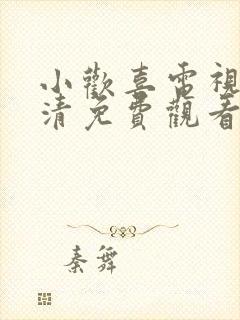 小歡喜電視
清免費觀看
秦舞